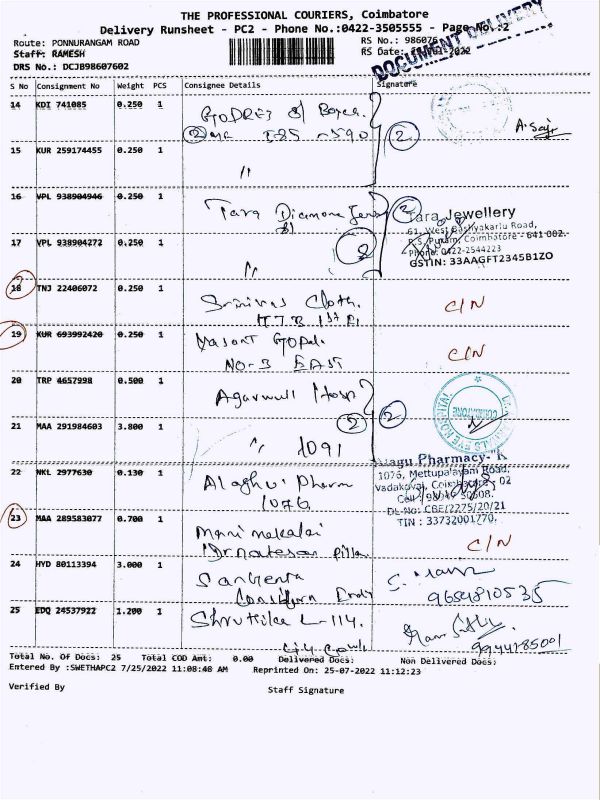 THE PROFESSIONAL COURIERS, Coimbatore
Delivery Runsheet - PC2 - Phone No.:0422-3505555 - Page No.:2
Route: PONNURANGAM ROAD
RS No.: 986076
Staff: RAMESH
RS Date:
DRS No.: DCJB98607602
DOCUMENT DELIVERY
S No Consignment No Weight PCS Consignee Details Signature
14 KDI 741085 0.250 1 GODREJ & Boyce.
2
15 KUR 259174455 0.250 1 "
16 VPL 938904946 0.250 1 Tara Diamond 2
Tara Jewellery
61, West Bashyakarlu Road,
R.S. Puram, Coimbatore - 641 002.
Phone: 0422-2544223
GSTIN: 33AAGFT2345B1ZO
17 VPL 938904272 0.250 1 " 2
18 TNJ 22406072 0.250 1 Srinivas Cloth. C/N
19 KUR 693992420 0.250 1 Vasant GOPal. C/N
NO-3 EAST
20 TRP 4657998 0.500 1 Agarwall Hosp
2 2
21 MAA 291984603 3.800 1 " 1091
EYE HOSPITAL
COIMBATORE
22 NKL 2977630 0.130 1 Alaghu Pharm
1076
Alagu Pharmacy-"K
1076, Mettupalayam Road,
Vadakovai, Coimbatore - 02
DL-No: CBE/2275/20/21
TIN : 33732001770.
23 MAA 289583077 0.700 1 Mani mekalai C/N
24 HYD 80113394 3.000 1 Sangeetha
9654810535
25 EDQ 24537922 1.200 1 Shrutika L-114.
9944285001
Total No. Of Docs: 25 Total COD Amt: 0.00 Delivered Docs: Non Delivered Docs:
Entered By :SWETHAPC2 7/25/2022 11:08:48 AM Reprinted On: 25-07-2022 11:12:23
Verified By Staff Signature